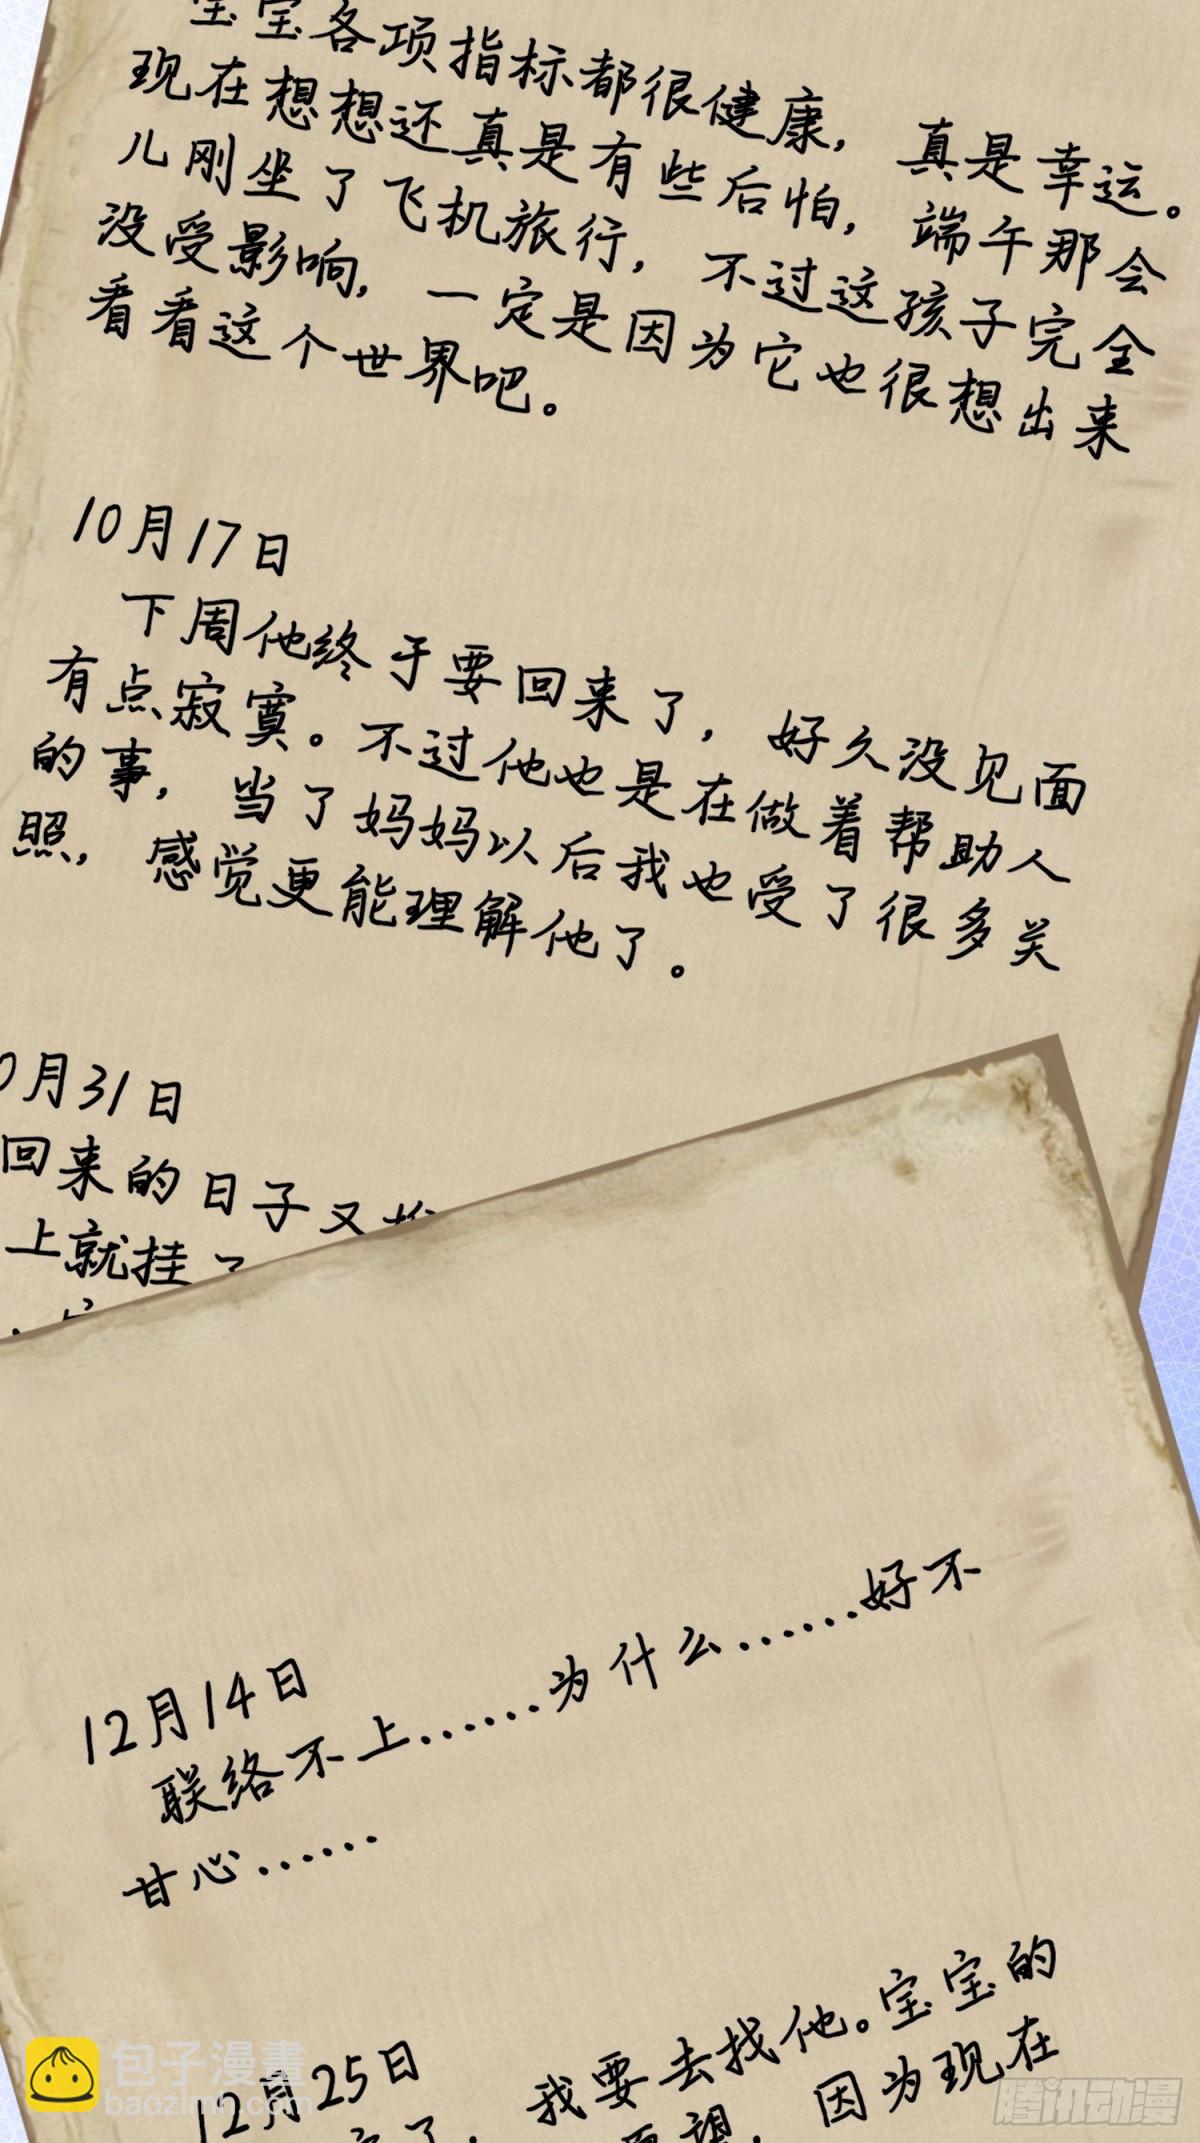 宝宝各项指标都很健康，真是幸运。
现在想想还真是有些后怕，端午那会
儿刚坐了飞机旅行，不过这孩子完全
没受影响，一定是因为它也很想出来
看看这个世界吧。
10月17日
下周他终于要回来了，好久没见面
有点寂寞。不过他也是在做着帮助人
的事，当了妈妈以后我也受了很多关
照，感觉更能理解他了。
0月31日
回来的日子又
上就挂了
12月14日
联络不上......为什么......好不
甘心......
12月25日
了，我要去找他。宝宝的
愿望，因为现在
包子漫畫
baozimh.com
腾讯动漫